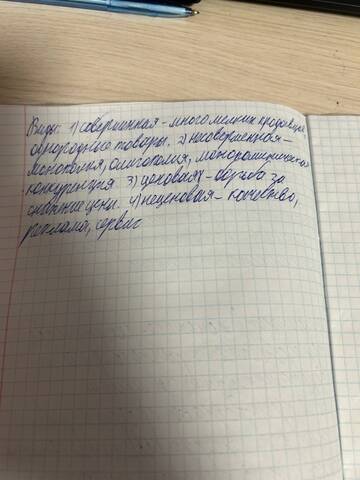 Виды: 1) совершенная – много мелких продавцов,
однородные товары. 2) несовершенная –
монополия, олигополия, монополистическая
конкуренция 3) ценовая – борьба за
снижение цены. 4) неценовая – качество,
реклама, сервис